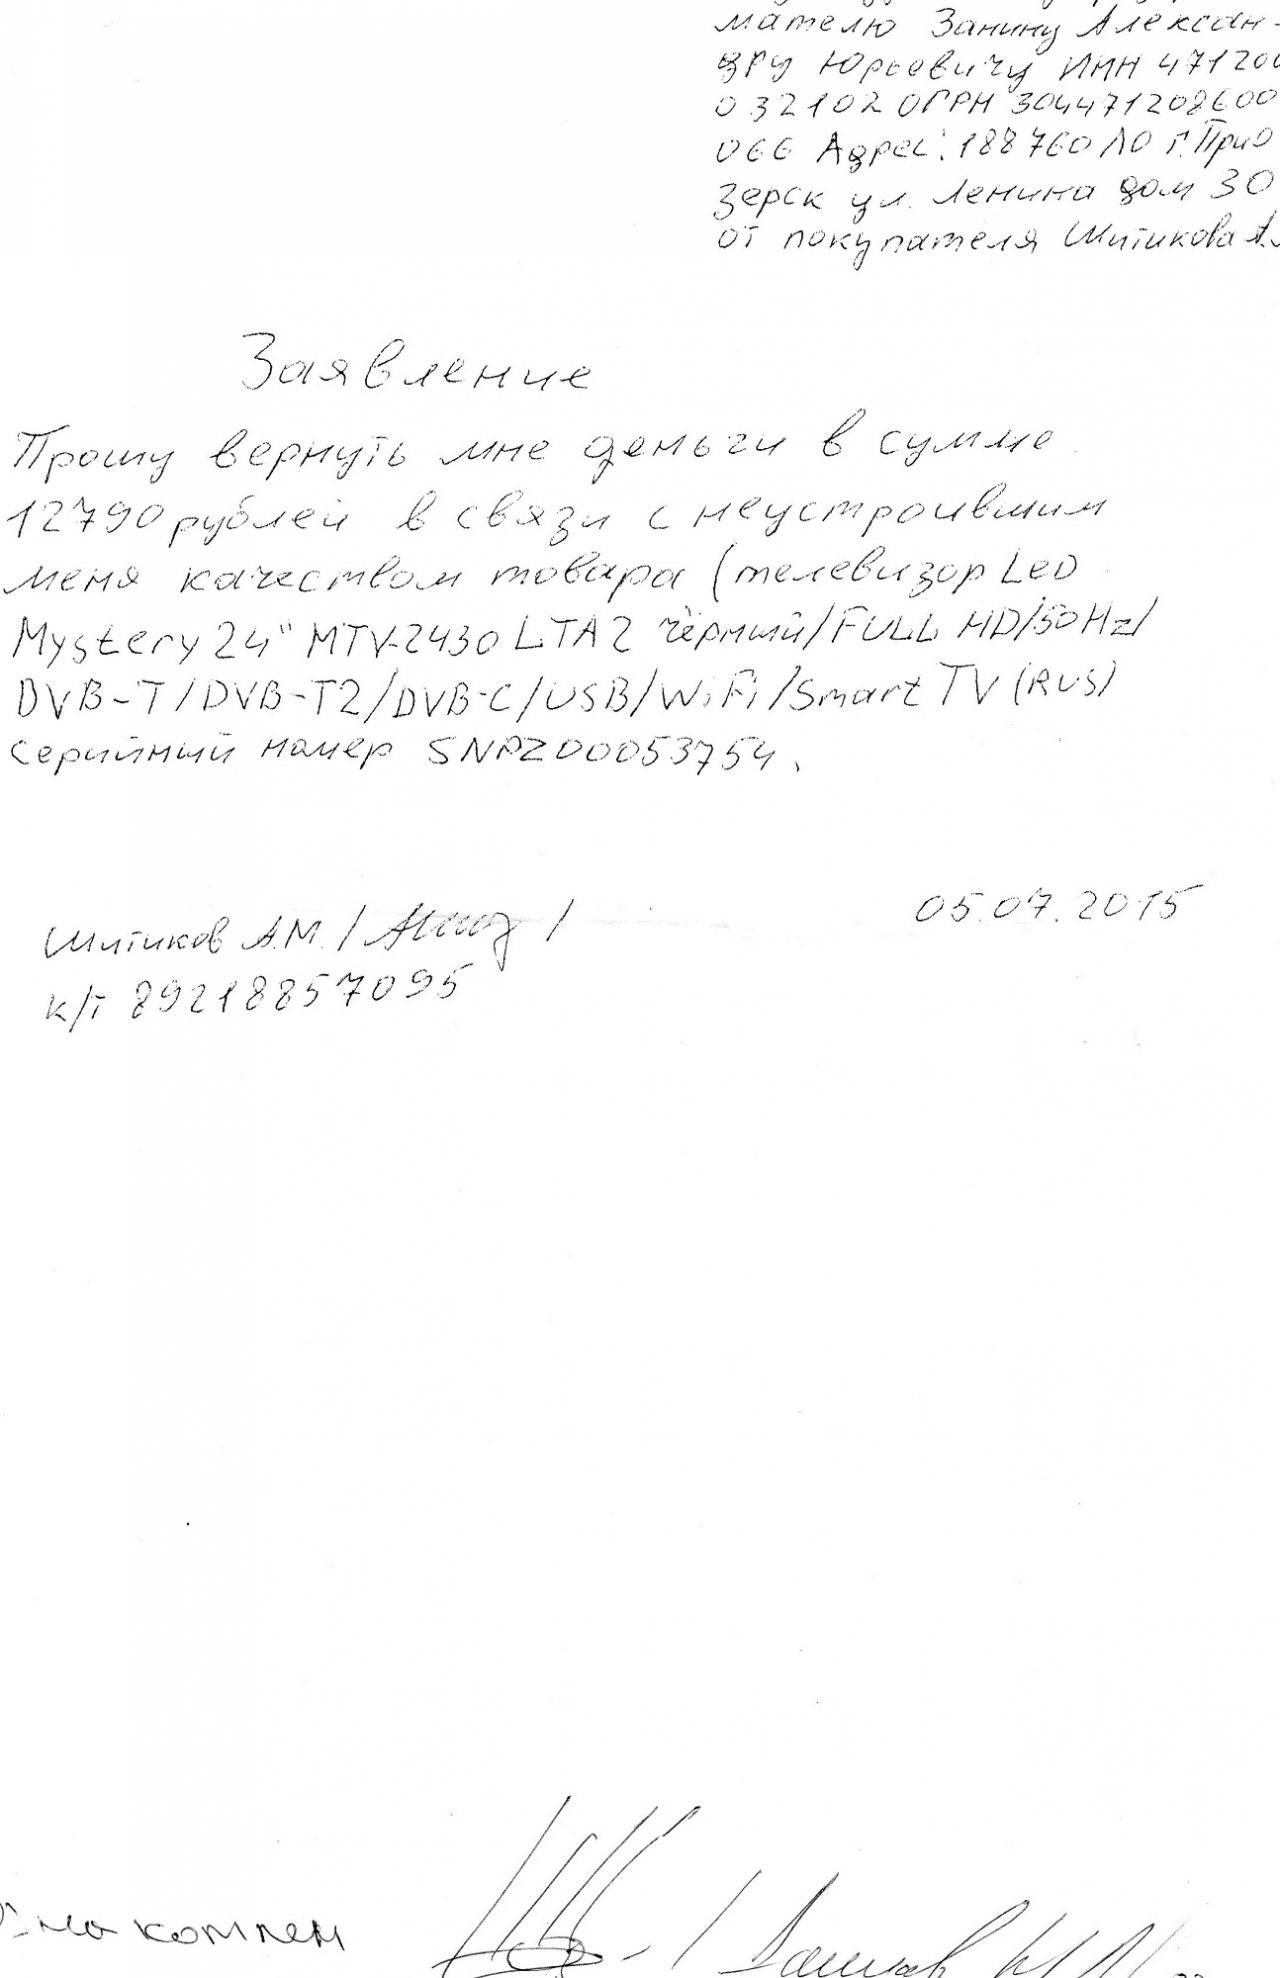 мателю Занину Алексан-
дру Юрьевичу ИНН 471200
032102 ОГРН 304471208600
066 Адрес: 188760 ЛО г. Прио
зерск ул. Ленина дом 30
от покупателя Шитикова А.
Заявление
Прошу вернуть мне деньги в сумме
12790 рублей в связи с неустроившим
меня качеством товара (телевизор LED
Mystery 24" MTV-2430 LTA2 чёрный/FULL HD/50Hz/
DVB-T/DVB-T2/DVB-C/USB/WiFi/Smart TV (RUS)
серийный номер SNPZ00053754.
Шитиков А.М. / /
05.07.2015
к/т 89218857095